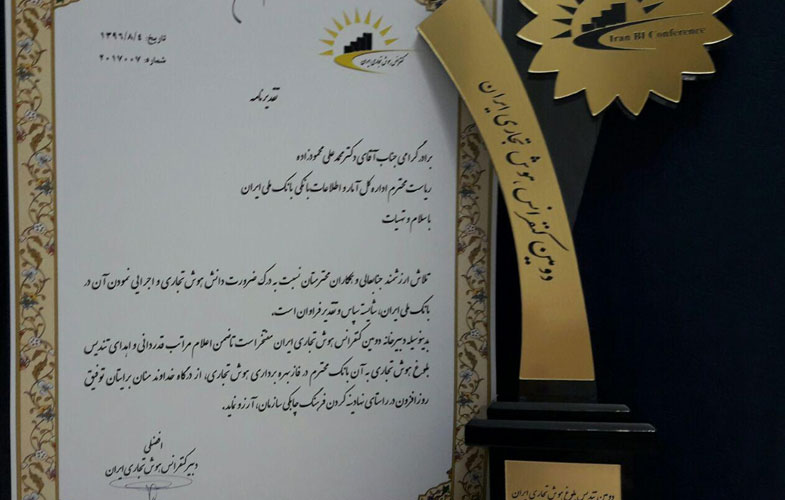 تاریخ: ۱۳۹۶/۸/۴
شماره: ۲۰۱۷۰۰۷
کنفرانس هوش تجاری ایران
تقدیرنامه
برادر گرامی جناب آقای دکتر محمدعلی محمودزاده
ریاست محترم اداره کل آمار و اطلاعات بانکی بانک ملی ایران
با سلام و تهیات
تلاش ارزشمند جنابعالی و همکاران محترمتان نسبت به درک ضرورت دانش هوش تجاری و اجرایی نمودن آن در
بانک ملی ایران، شائسته سپاس و تقدیر فراوان است.
بدینوسیله دبیرخانه دومین کنفرانس هوش تجاری ایران مفتخر است تا ضمن اعلام مراتب قدردانی و اهدای تندیس
بلوغ هوش تجاری به آن بانک محترم در فاز بهره برداری هوش تجاری، از درگاه خداوند منان برایتان توفیق
روزافزون در راستای نهادینه کردن فرهنگ چابکی سازمان، آرزو نماید.
افضلی
دبیر کنفرانس هوش تجاری ایران
Iran BI Conference
دومین کنفرانس هوش تجاری ایران
دومین تندیس بلوغ هوش تجاری ایران